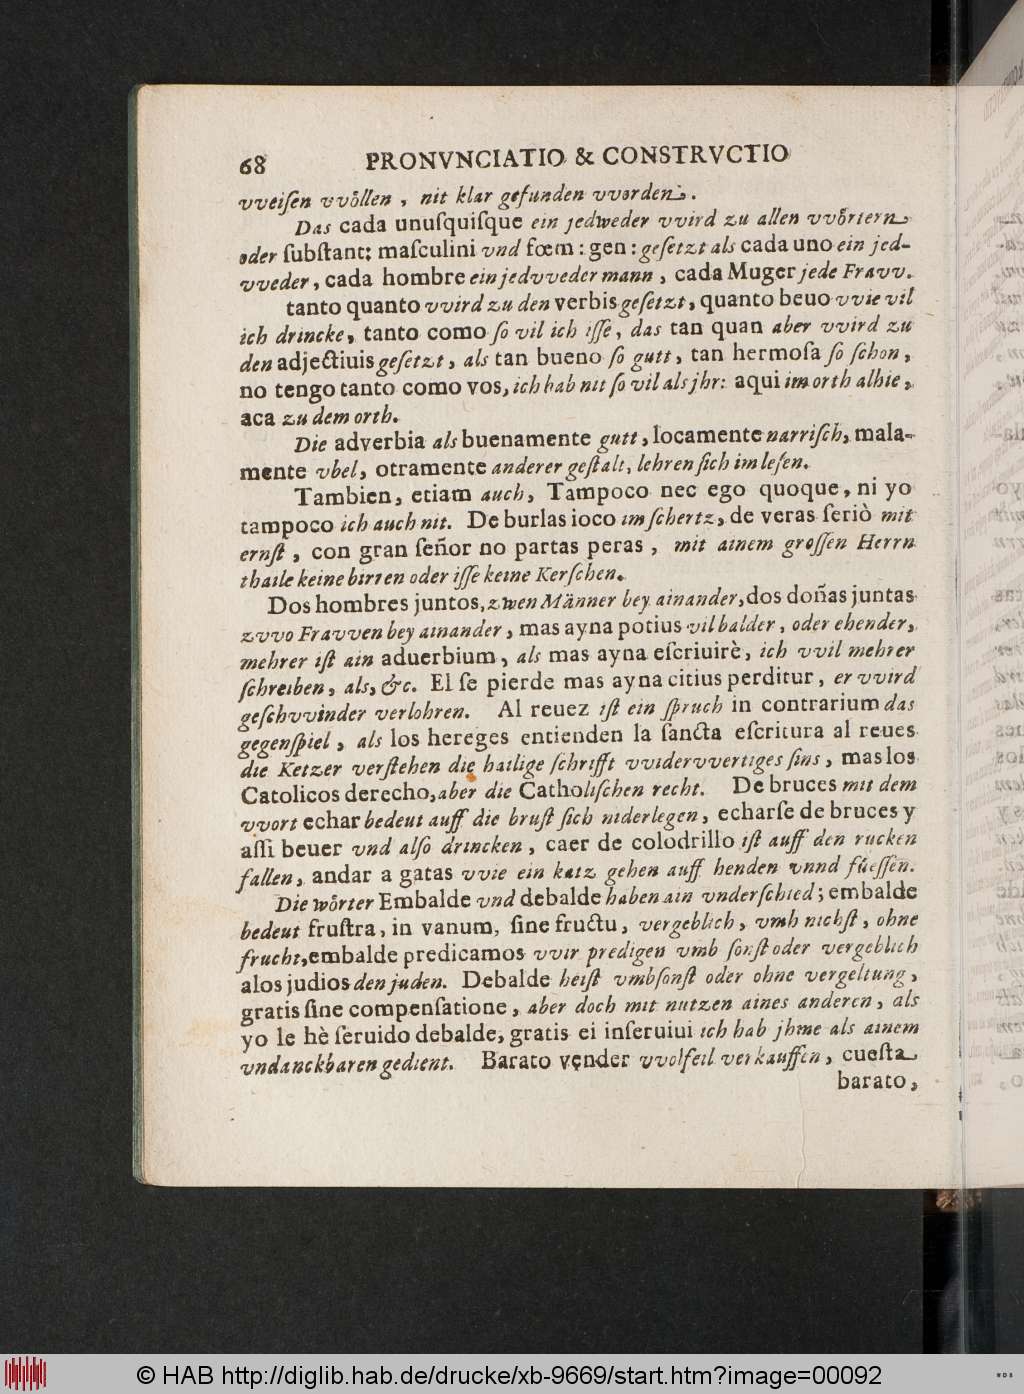 68 PRONVNCIATIO & CONSTRVCTIO
vveiſen vvöllen, nit klar gefunden vvorden.
Das cada unuſquiſque ein jedweder vvird zu allen vvörtern
oder ſubſtant: maſculini vnd fœm: gen: geſetzt als cada uno ein jed-
vveder, cada hombre ein jedvveder mann, cada Muger jede Fravv.
tanto quanto vvird zu den verbis geſetzt, quanto beuo vvie vil
ich drincke, tanto como ſo vil ich iſſe, das tan quan aber vvird zu
den adjectiuis geſetzt, als tan bueno ſo gutt, tan hermoſa ſo ſchon,
no tengo tanto como vos, ich hab nit ſo vil als jhr: aqui im orth alhie,
aca zu dem orth.
Die adverbia als buenamente gutt, locamente narriſch, mala-
mente vbel, otramente anderer geſtalt, lehren ſich im leſen.
Tambien, etiam auch, Tampoco nec ego quoque, ni yo
tampoco ich auch nit. De burlas ioco im ſchertz, de veras ſeriò mit
ernſt, con gran ſeñor no partas peras, mit ainem groſſen Herrn
thaile keine birren oder iſſe keine Kerſchen.
Dos hombres juntos, zwen Männer bey ainander, dos doñas juntas
zvvo Fravven bey ainander, mas ayna potius vil balder, oder ehender,
mehrer iſt ain aduerbium, als mas ayna eſcriuirè, ich vvil mehrer
ſchreiben, als, &c. El ſe pierde mas ayna citius perditur, er vvird
geſchvvinder verlohren. Al reuez iſt ein ſpruch in contrarium das
gegenſpiel, als los hereges entienden la ſancta eſcritura al reues
die Ketzer verſtehen die hailige ſchrifft vvidervvertiges ſins, mas los
Catolicos derecho, aber die Catholiſchen recht. De bruces mit dem
vvort echar bedeut auff die bruſt ſich niderlegen, echarſe de bruces y
aſſi beuer vnd alſo drincken, caer de colodrillo iſt auff den rucken
fallen, andar a gatas vvie ein katz gehen auff henden vnnd füeſſen.
Die wörter Embalde vnd debalde haben ain vnderſchied; embalde
bedeut fruſtra, in vanum, ſine fructu, vergeblich, vmb nichſt, ohne
frucht, embalde predicamos vvir predigen vmb ſonſt oder vergeblich
alos judios den juden. Debalde heiſt vmbſonſt oder ohne vergeltung,
gratis ſine compenſatione, aber doch mit nutzen aines anderen, als
yo le hè ſeruido debalde, gratis ei inſeruiui ich hab jhme als ainem
vndanckbaren gedient. Barato vender vvolfeil verkauffen, cueſta
barato,
© HAB http://diglib.hab.de/drucke/xb-9669/start.htm?image=00092